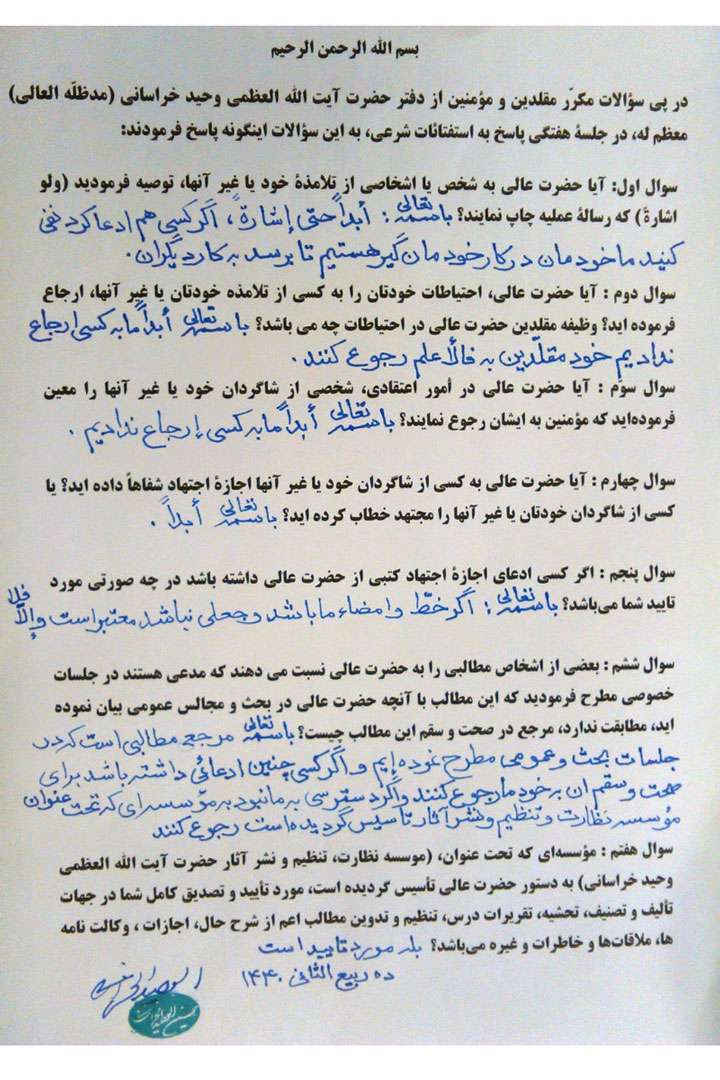 بسم الله الرحمن الرحیم
در پی سؤالات مکرّر مقلدین و مؤمنین از دفتر حضرت آیت الله العظمی وحید خراسانی (مدظلّه العالی)
معظم له، در جلسۀ هفتگی پاسخ به استفتائات شرعی، به این سؤالات اینگونه پاسخ فرمودند:
سوال اول: آیا حضرت عالی به شخص یا اشخاصی از تلامذۀ خود یا غیر آنها، توصیه فرمودید (ولو
اشارةً) که رسالۀ عملیه چاپ نمایند؟ باسمه تعالی : أبداً حتی إشارةً، اگر کسی هم ادعا کرد نفی
کنید ما خودمان در کار خودمان گیر هستیم تا برسد به کار دیگران.
سوال دوم : آیا حضرت عالی، احتیاطات خودتان را به کسی از تلامذه خودتان یا غیر آنها، ارجاع
فرموده اید؟ وظیفه مقلدین حضرت عالی در احتیاطات چه می باشد؟ باسمه تعالی أبداً ما به کسی إرجاع
ندادیم خود مقلّدین به فالأعلم رجوع کنند.
سوال سوّم : آیا حضرت عالی در أمور اعتقادی، شخصی از شاگردان خود یا غیر آنها را معین
فرموده‌اید که مؤمنین به ایشان رجوع نمایند؟ باسمه تعالی أبداً ما به کسی إرجاع ندادیم .
سوال چهارم : آیا حضرت عالی به کسی از شاگردان خود یا غیر آنها اجازۀ اجتهاد شفاهاً داده اید؟ یا
کسی از شاگردان خودتان یا غیر آنها را مجتهد خطاب کرده اید؟ باسمه تعالی أبداً .
سوال پنجم : اگر کسی ادعای اجازۀ اجتهاد کتبی از حضرت عالی داشته باشد در چه صورتی مورد
تایید شما می‌باشد؟ باسمه تعالی : اگر خطّ و امضاء ما باشد و جعلی نباشد معتبر است وإلّا فلا
سوال ششم : بعضی از اشخاص مطالبی را به حضرت عالی نسبت می دهند که مدعی هستند در جلسات
خصوصی مطرح فرمودید که این مطالب با آنچه حضرت عالی در بحث و مجالس عمومی بیان نموده
اید، مطابقت ندارد، مرجع در صحت و سقم این مطالب چیست؟ باسمه تعالی مرجع مطالبی است که در
جلسات بحث و عمومی مطرح نموده إیم و اگر کسی چنین ادعائی داشته باشد برای
صحت و سقم ان به خودمان رجوع کنند و اگر دسترسی به ما نبود به مؤسسه ای که تحت عنوان
مؤسسه نظارت و تنظیم و نشر آثار تأسیس گردیده است رجوع کنند
سوال هفتم : مؤسسه‌ای که تحت عنوان، (موسسه نظارت، تنظیم و نشر آثار حضرت آیت الله العظمی
وحید خراسانی) به دستور حضرت عالی تأسیس گردیده است، مورد تأیید و تصدیق کامل شما در جهات
تألیف و تصنیف، تحشیه، تقریرات درس، تنظیم و تدوین مطالب اعم از شرح حال، اجازات ، وکالت نامه
ها، ملاقات‌ها و خاطرات و غیره می‌باشد؟ بله مورد تایید است
ده ربیع الثانی ۱۴۴۰